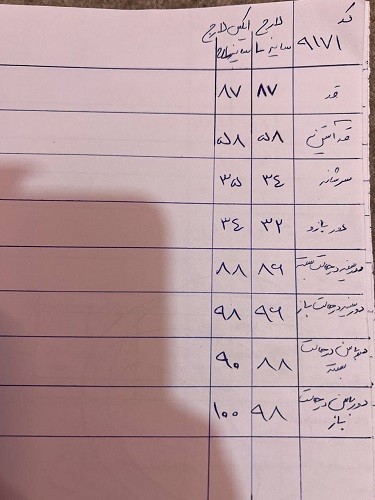 کد ۹۱۷۱ لارج سایز ۱ ایکس لارج سایز ۲
قد ۸۷ ۸۷
قد آستین ۵۸ ۵۸
سرشانه ۳۴ ۳۵
دور بازو ۳۲ ۳۴
دور سینه در حالت بسته ۸۶ ۸۸
دور سینه در حالت باز ۹۶ ۹۸
دور باسن در حالت بسته ۸۸ ۹۰
دور باسن در حالت باز ۹۸ ۱۰۰